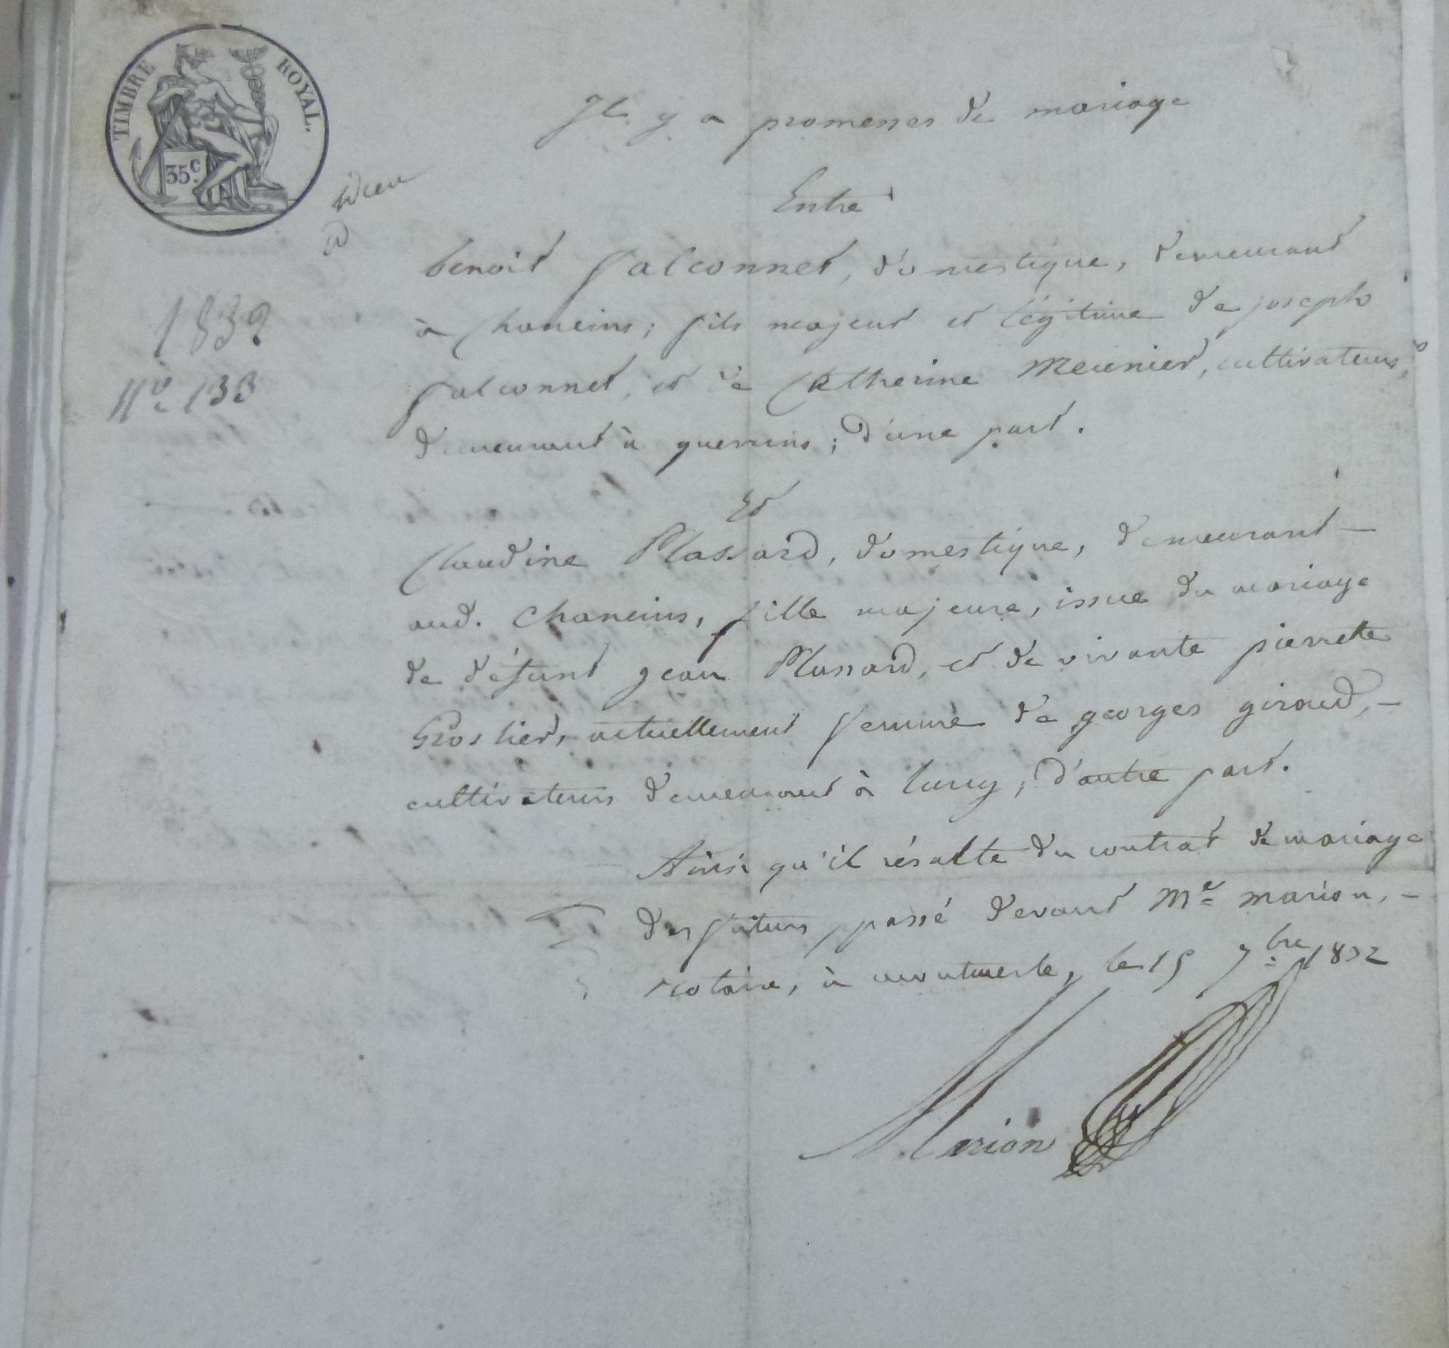 TIMBRE ROYAL.
35c.
Il y a promesses de mariage
Entre
1832
No. 133
benoit falconnet, domestique, demeurant
à Chaneins; fils majeur et légitime de joseph
falconnet, et de Catherine Meunier, cultivateurs,
demeurant à guereins; d'une part.
Et
Claudine Plassard, domestique, demeurant
aud. Chaneins, fille majeure, issue du mariage
de défunt jean Plassard, et de vivante pierrette
Groslier, actuellement femme de georges giraud,
cultivateurs demeurant à lurcy; d'autre part.
Ainsi qu'il résulte du contrat de mariage
des futurs, passé devant Me marion,
notaire, à montmerle, le 15 7bre 1832
Marion